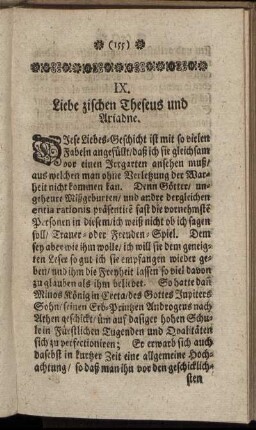 (155)
IX.
Liebe zischen Theseus und
Ariadne.
DJese Liebes-Geschicht ist mit so vielen
Fabeln angefüllt/ daß ich sie gleichsam
vor einen Irrgarten ansehen muß/
aus welchen man ohne Verletzung der War-
heit nicht kommen kan. Denn Götter/ un-
geheure Mißgeburten/ und andre dergleichen
entia rationis præsentire fast die vornehmste
Personen in diesem/ ich weiß nicht ob ich sagen
soll/ Traur- oder Freuden-Spiel. Dem
sey aber wie ihm wolle/ ich will sie dem geneig-
ten Leser so gut ich sie empfangen wieder ge-
ben/ und ihm die Freyheit lassen so viel davon
zu glauben als ihm beliebet. So hatte dañ
Minos König in Creta/ des Gottes Jupiters
Sohn/ seinen Erb-Printzen Androgeus nach
Athen geschickt/ üm auf dasiger hohen Schu-
le in Fürstlichen Tugenden und Qualitäten
sich zu perfectioniren; Es erwarb sich auch
daselbst in kurtzer Zeit eine allgemeine Hoch-
achtung/ so daß man ihn vor den geschicklich-
sten